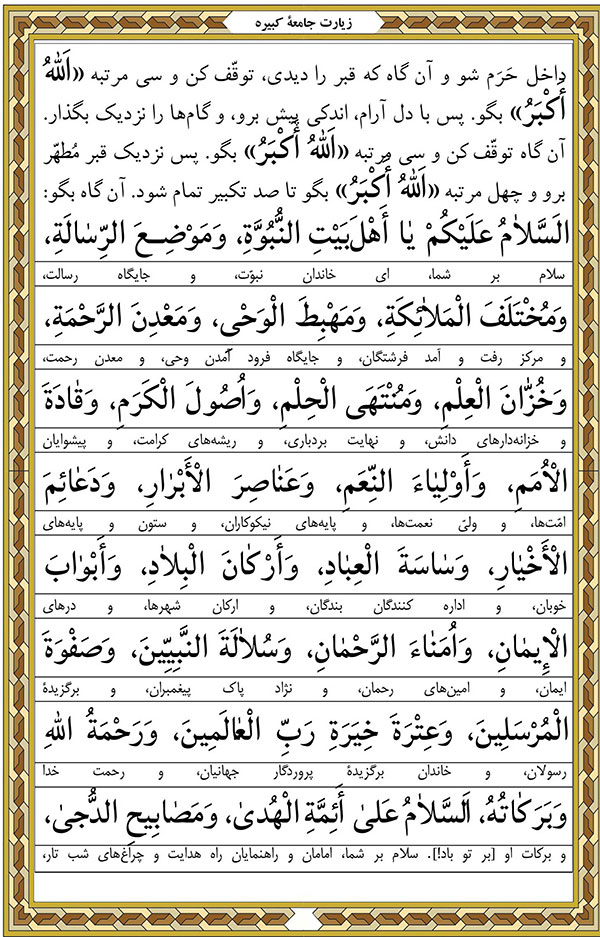 زیارت جامعهٔ کبیره
داخل حَرَم شو و آن گاه که قبر را دیدی، توقّف کن و سی مرتبه «اَللّٰهُ
أَکْبَرُ» بگو. پس با دل آرام، اندکی پیش برو، و گام‌ها را نزدیک بگذار.
آن گاه توقّف کن و سی مرتبه «اَللّٰهُ أَکْبَرُ» بگو. پس نزدیک قبر مُطهّر
برو و چهل مرتبه «اَللّٰهُ أَکْبَرُ» بگو تا صد تکبیر تمام شود. آن گاه بگو:
اَلسَّلاٰمُ عَلَیْکُمْ یٰا أَهْلَ بَیْتِ النُّبُوَّةِ، وَمَوْضِعَ الرِّسٰالَةِ،
سلام بر شما، ای خاندان نبوّت، و جایگاه رسالت،
وَمُخْتَلَفَ الْمَلاٰئِکَةِ، وَمَهْبِطَ الْوَحْیِ، وَمَعْدِنَ الرَّحْمَةِ،
و مرکز رفت و آمد فرشتگان، و جایگاه فرود آمدن وحی، و معدن رحمت،
وَخُزّٰانَ الْعِلْمِ، وَمُنْتَهَی الْحِلْمِ، وَاُصُولَ الْکَرَمِ، وَقٰادَةَ
و خزانه‌دارهای دانش، و نهایت بردباری، و ریشه‌های کرامت، و پیشوایان
الْاُمَمِ، وَأَوْلِیٰاءَ النِّعَمِ، وَعَنٰاصِرَ الْأَبْرٰارِ، وَدَعٰائِمَ
امّت‌ها، و ولیّ نعمت‌ها، و پایه‌های نیکوکاران، و ستون و پایه‌های
الْأَخْیٰارِ، وَسٰاسَةَ الْعِبٰادِ، وَأَرْکٰانَ الْبِلاٰدِ، وَأَبْوٰابَ
خوبان، و اداره کنندگان بندگان، و ارکان شهرها، و درهای
الْإِیمٰانِ، وَاُمَنٰاءَ الرَّحْمٰانِ، وَسُلاٰلَةَ النَّبِیِّینَ، وَصَفْوَةَ
ایمان، و امین‌های رحمان، و نژاد پاک پیغمبران، و برگزیدهٔ
الْمُرْسَلِینَ، وَعِتْرَةَ خِیَرَةِ رَبِّ الْعٰالَمِینَ، وَرَحْمَةُ اللّٰهِ
رسولان، و خاندان برگزیدهٔ پروردگار جهانیان، و رحمت خدا
وَبَرَکٰاتُهُ، اَلسَّلاٰمُ عَلیٰ أَئِمَّةِ الْهُدیٰ، وَمَصٰابِیحِ الدُّجیٰ،
و برکات او [بر تو باد!]. سلام بر شما، امامان و راهنمایان راه هدایت و چراغ‌های شب تار،